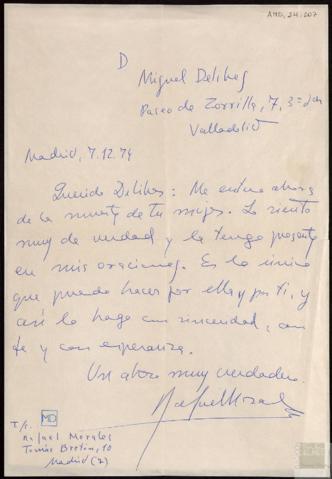 AMD, 24, 207
D
Miguel Delibes
Paseo de Zorrilla, 7, 3º dcha
Valladolid
Madrid, 7.12.74
Querido Delibes: Me entero ahora
de la muerte de tu mujer. Lo siento
muy de verdad y la tengo presente
en mis oraciones. Es lo único
que puedo hacer por ella y por ti, y
así lo hago con sinceridad, con
fe y con esperanza.
Un abrazo muy verdadero.
Rafael Morales
MD
Rafael Morales
Tomás Bretón, 10
Madrid (7)